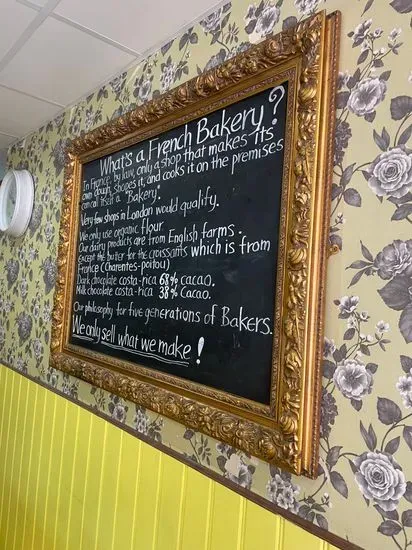 What's a French Bakery?
In France, by law, only a shop that makes its
own dough, shapes it, and cooks it on the premises
can call itself a "Bakery".
Very few shops in London would qualify.
We only use organic flour.
Our dairy products are from English farms.
Except the butter for the croissants which is from
France (Charentes-poitou)
Dark chocolate costa-rica 68% cacao.
Milk chocolate costa-rica 38% Cacao.
Our philosophy for five generations of Bakers.
We only sell what we make!